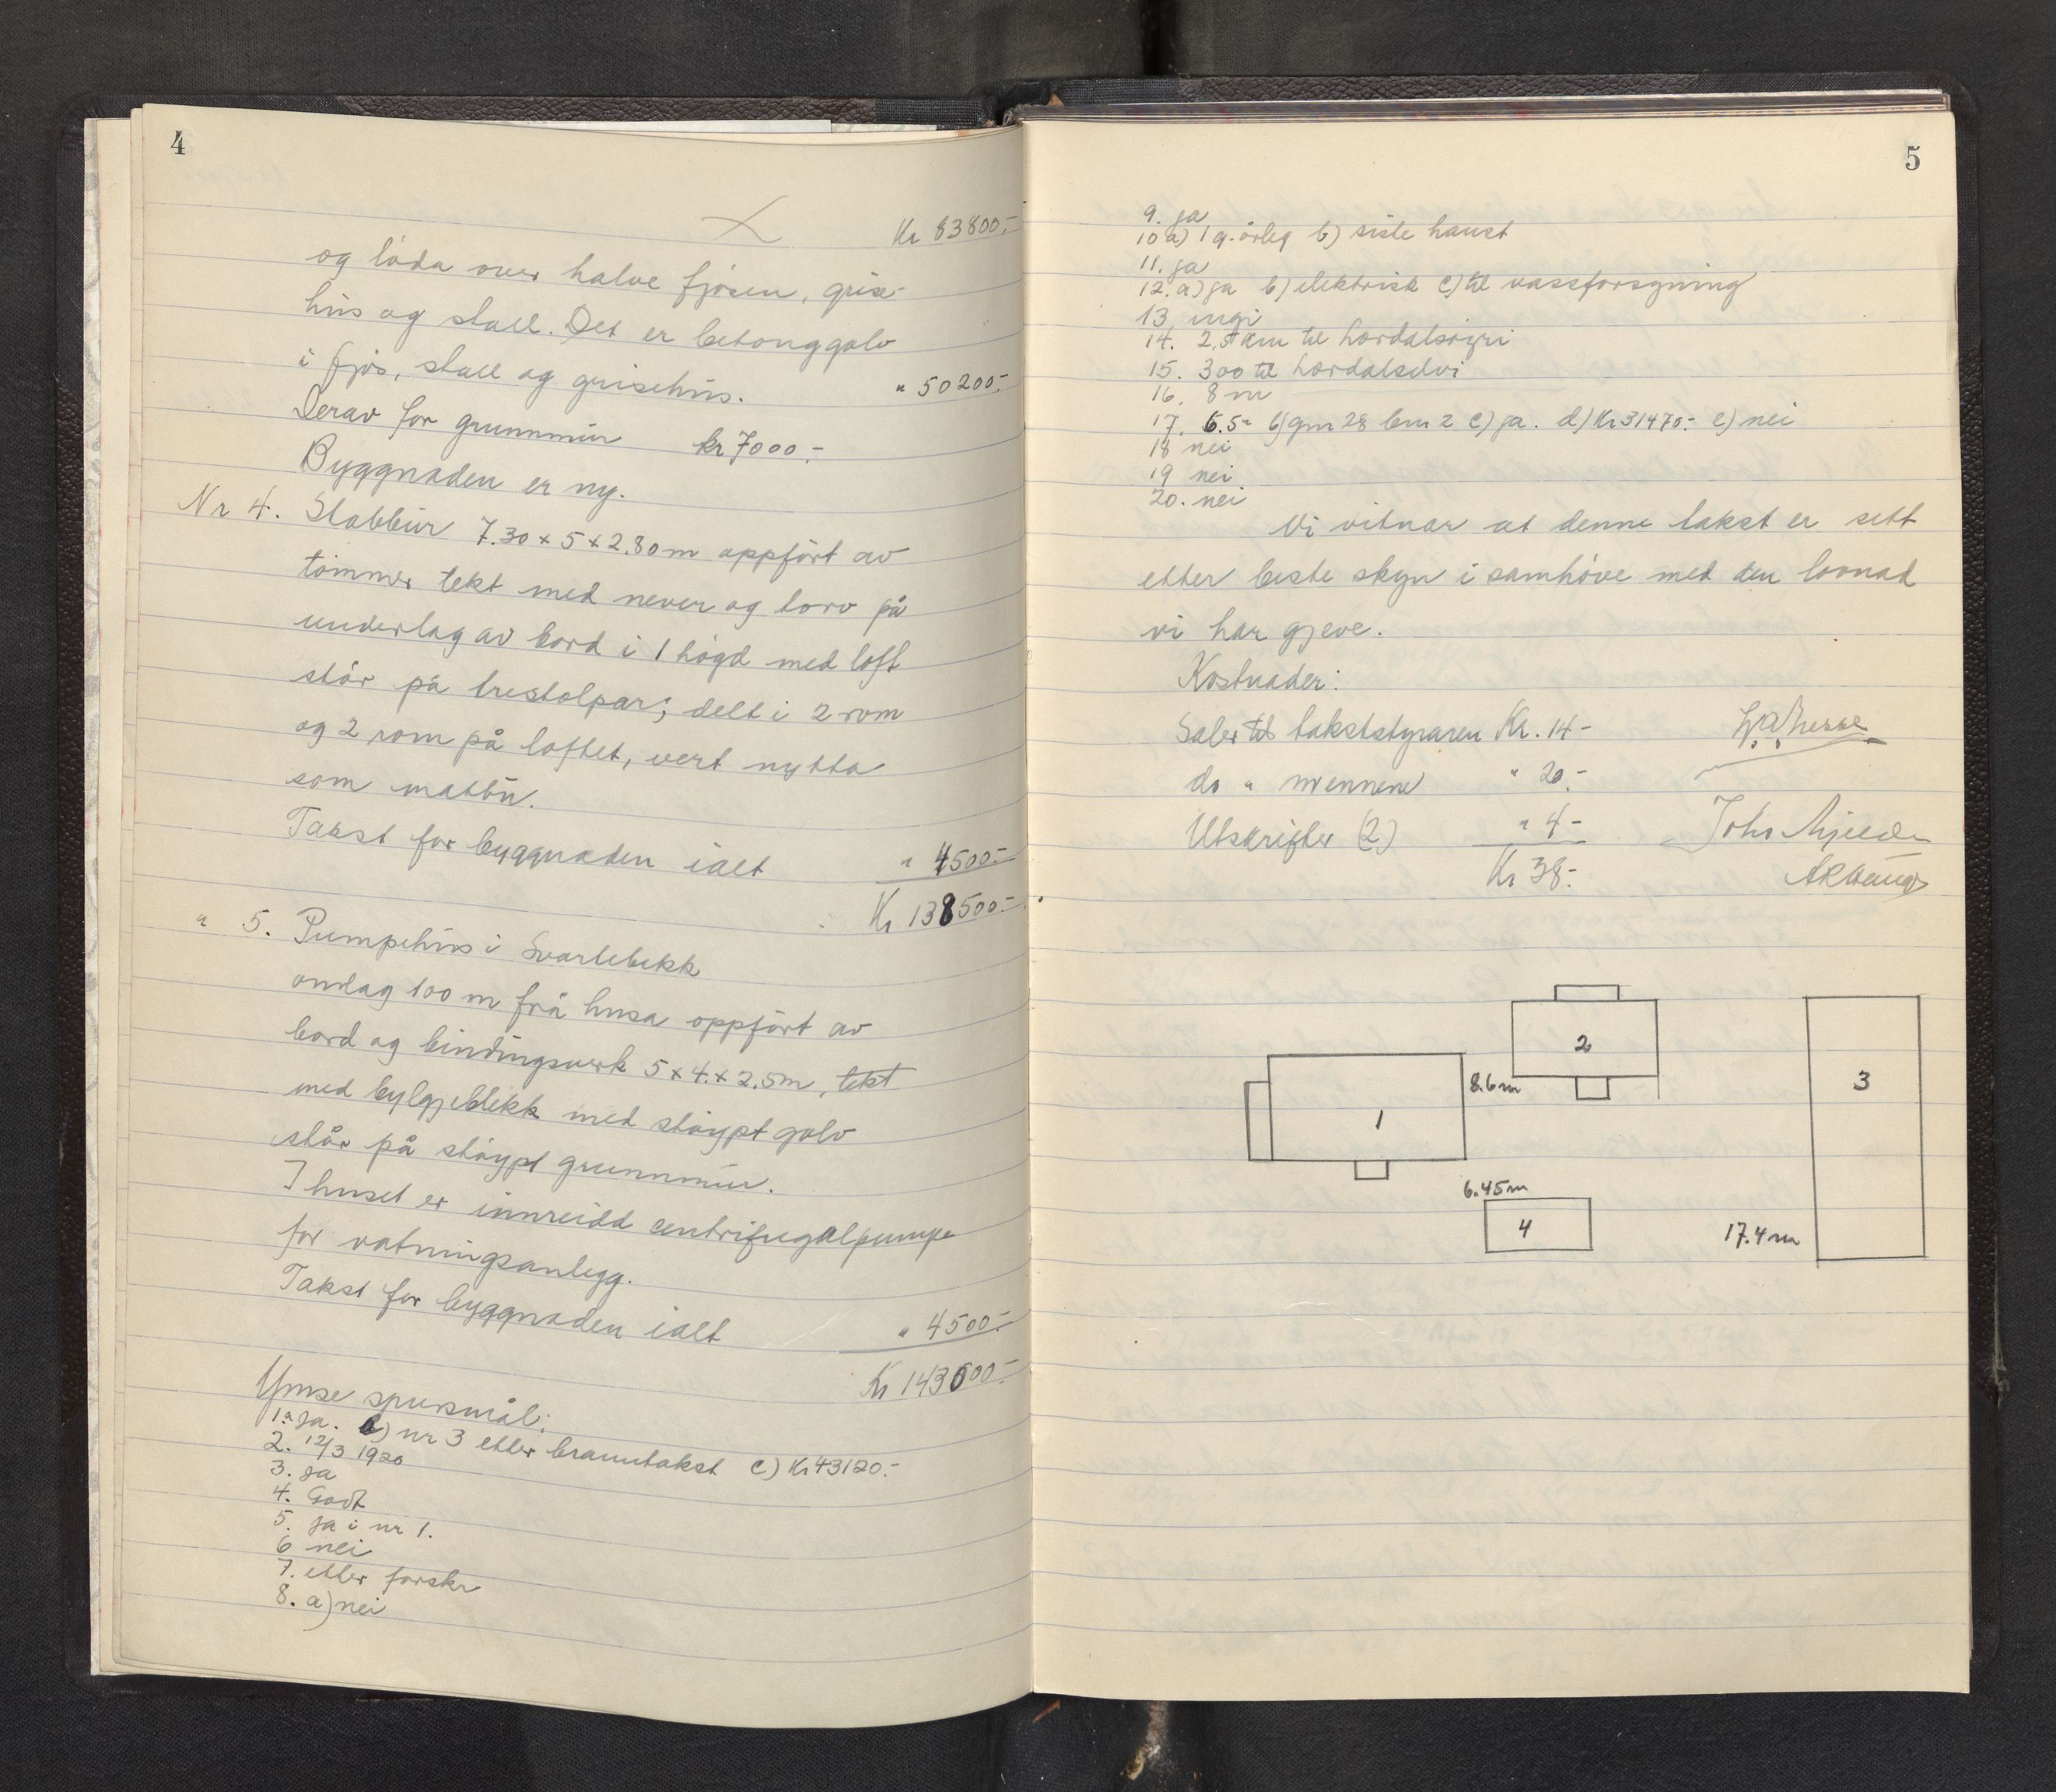 4
Kr 83800.-
og löda over halve fjösen, grise-
hus og stall. Det er betonggolv
i fjös, stall og grisehus. " 50200.-
Derav for grunnmur kr 7000.-
Byggnaden er ny.
Nr 4. Stabbur 7.30 x 5 x 2.80 m oppfört av
tömmer tekt med never og torv på
underlag av bord i 1 högd med loft
står på trestolpar; delt i 2 rom
og 2 rom på loftet, vert nytta
som matbu.
Takst for byggnaden ialt " 4500.-
Kr 138500.-
" 5. Pumpehus i Svartebekk
omlag 100 m frå husa oppfört av
bord og bindingsverk 5 x 4. x 2.5m, tekt
med bylgjeblekk med stöypt golv
står på stöypt grunnmur.
I huset er innreidd centrifugalpumpe
for vatningsanlegg.
Takst for byggnaden ialt " 4500.-
Kr 143000.-
Ymse spursmål:
1.a ja. b) nr 3 etter branntakst c) Kr 43120.-
2. 12/3 1920
3. ja
4. Godt
5. ja i nr 1.
6 nei
7. etter forskr
8. a) nei
5
9. ja
10 a) 1 g. årleg b) siste haust
11. ja
12. a) ja b) elektrisk c) til vassforsyning
13 ingi
14. 2.5 km til Lærdalsøyri
15. 300 til Lærdalselvi
16. 8 m
17. 6.5a b) gnr 28 bnr 2 c) ja. d) Kr 31470.- e) nei
18 nei
19 nei
20. nei
Vi vitnar at denne takst er sett
etter beste skyn i samhöve med den lovnad
vi har gjeve.
Kostnader:
Salær til takststyraren Kr. 14-
do " mennene " 20.-
Utskrifter (2) " 4-
Kr 38.-
2
3
8.6m
1
6.45m
4
17.4m